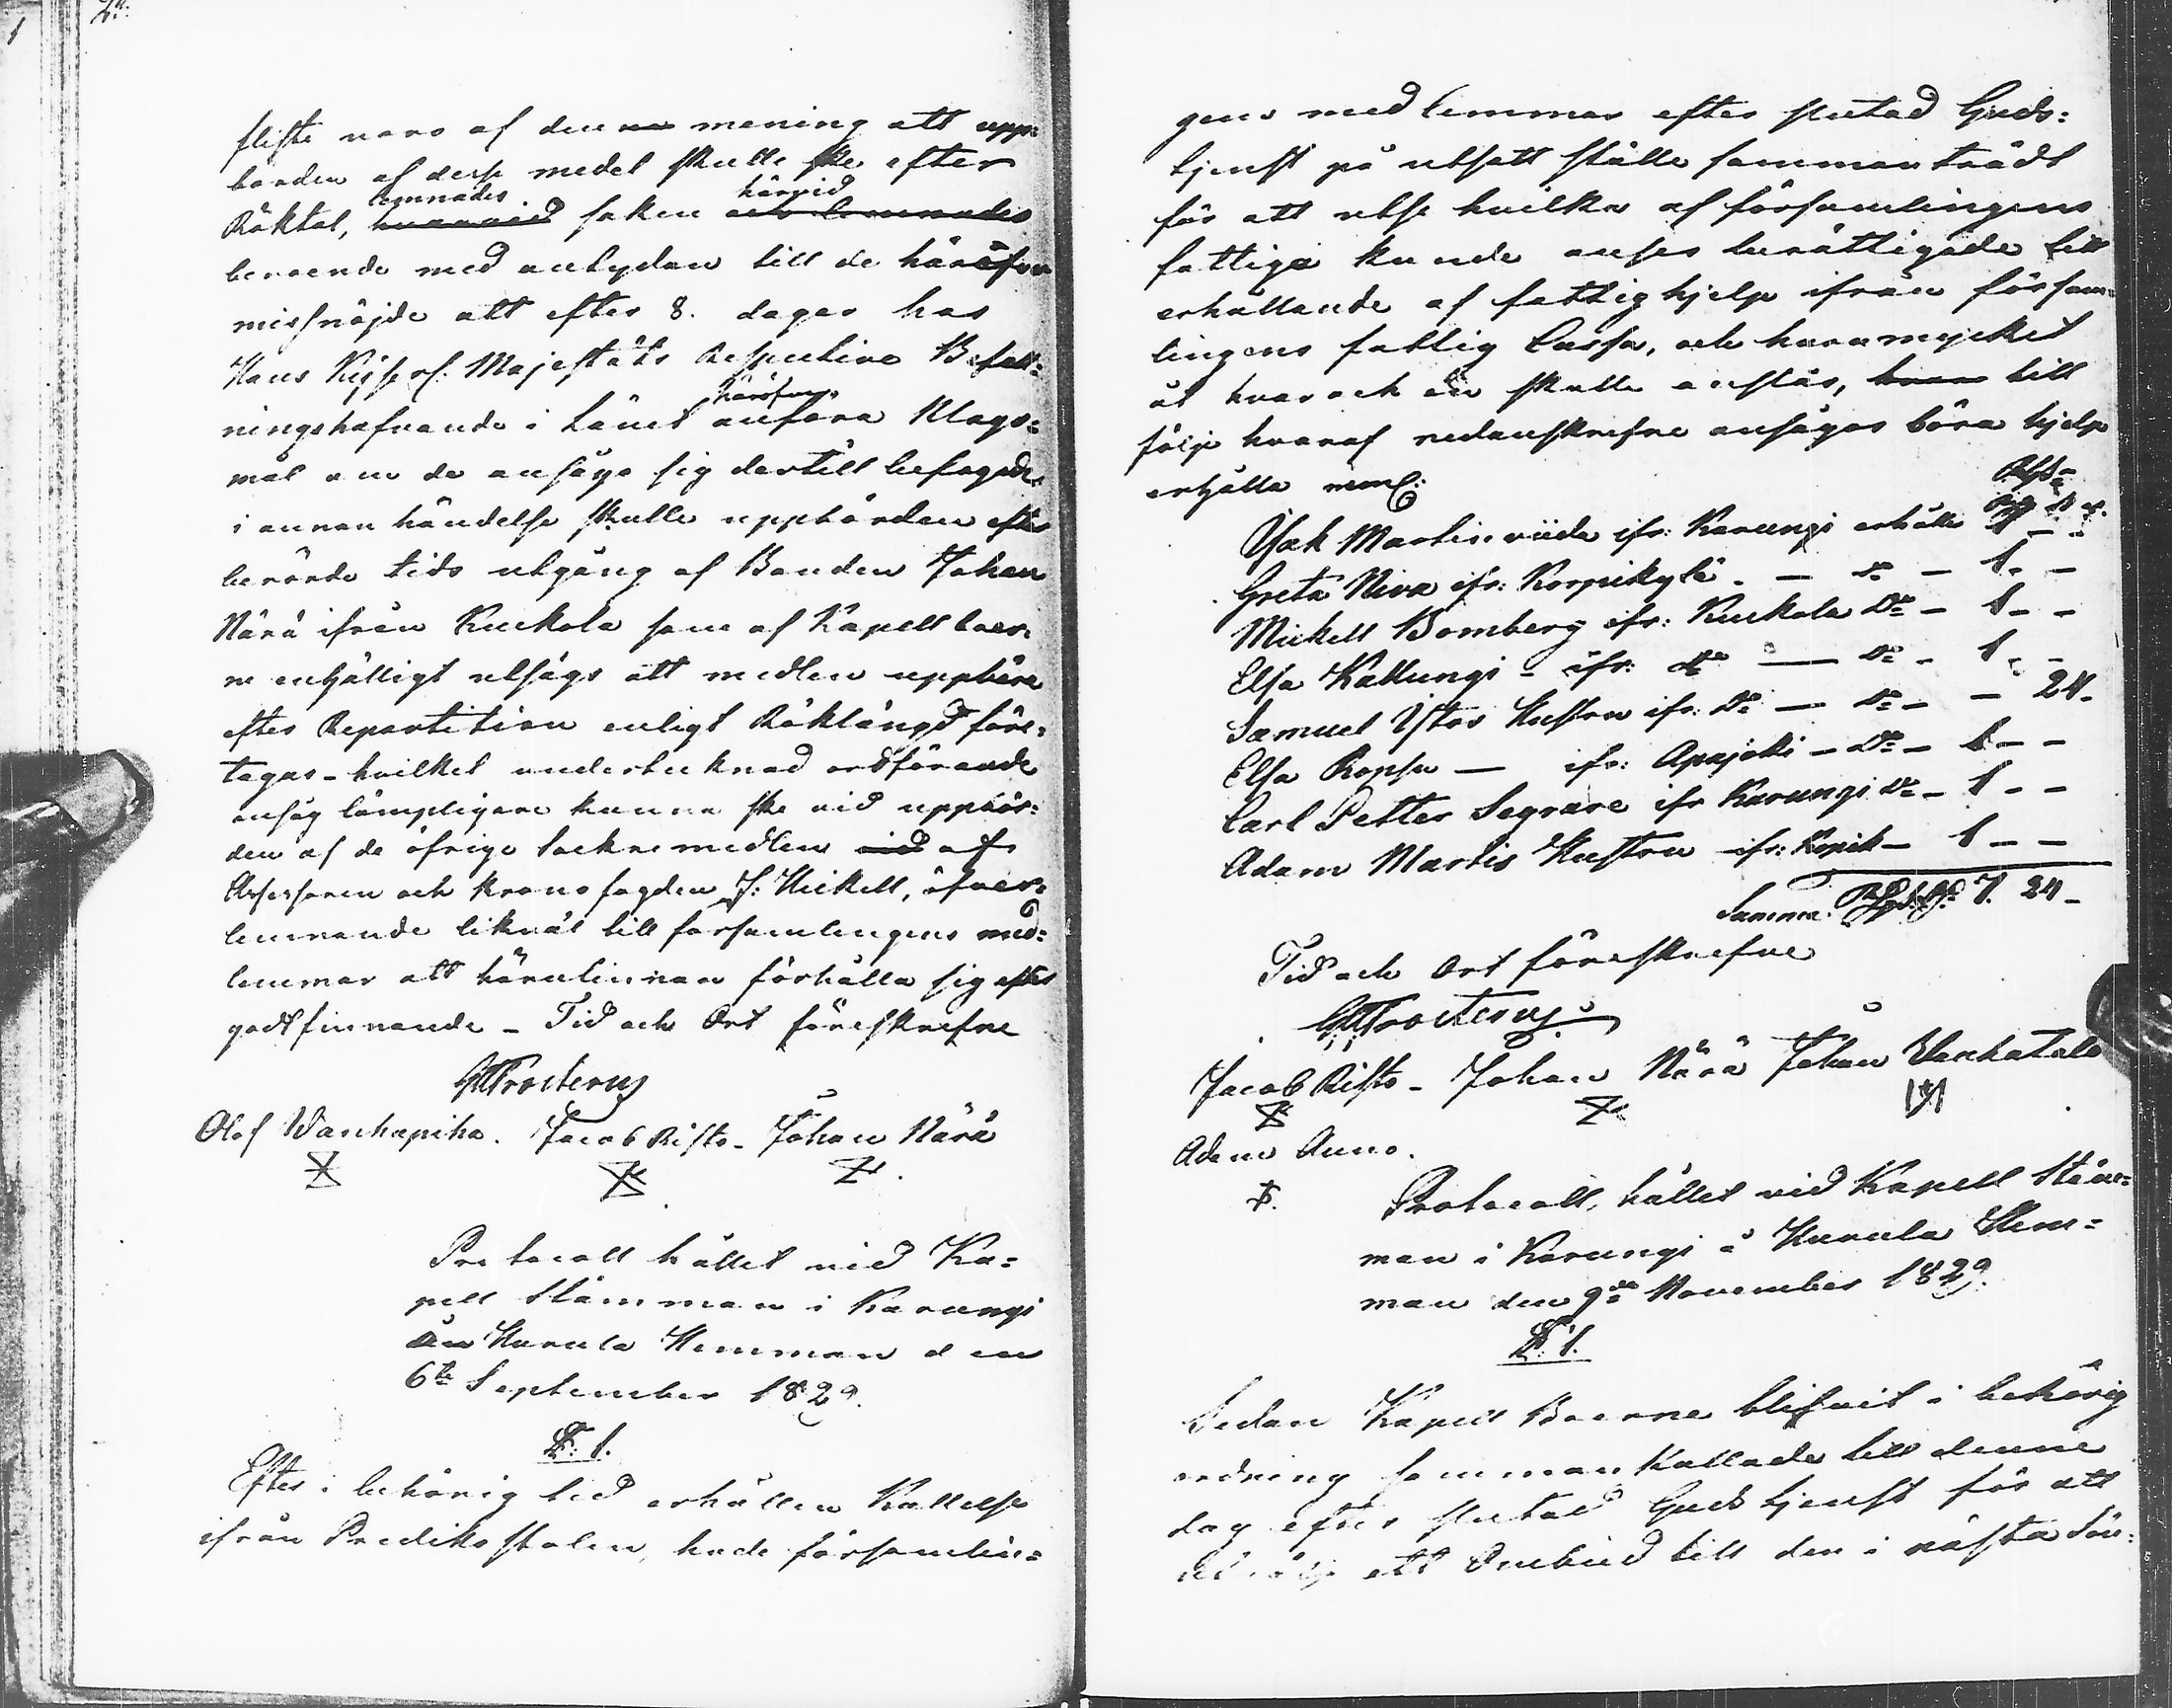 fleste voro af den mening att upp=
börden af desse medel skulle ske efter
Röktal, lemnades saken härvid
beroende med antydan till de häröfver
missnöjde att efter 8. dagar hos
Hans Kejserl. Majestäts Respective Befall=
ningshafvande i Länet häröfver anföra Klago=
mål om de ansågo sig dertill befogade,
i annan händelse skulle uppbörden efter
berörde tids utgång af Bonden Johan
Närä ifrån Kuckola som af Kapell boer
ne enhälligt utsågs att medlen uppbära
efter Repartition enligt Röklängd före=
tagas - hvilket undertecknad ordförande
ansåg lämpligare kunna ske vid uppbör=
den af de öfrige Sockne medlen af
Assessoren och Kronofogden J: Heikell, öfver=
lemnande likväl till församlingens med=
lemmar att härutinnan förhålla sig efter
godtfinnande - Tid och Ort föreskrefne
Olof Wanhapiha. Jacob Risto - Johan Närä
Protocoll hållet vid Ka=
pell Stämman i Karungi
Hurula Hemman den
6te September 1829.
§: 1.
Efter i behörig tid erhållen Kallelse
ifrån Predikostolen, hade församlin=
gens medlemmar efter slutad Guds=
tjenst på utsatt ställe sammanträdt
för att utse hvilka af församlingens
fattiga kunde anses berättigade till
erhållande af fattighjelp ifrån försam=
lingens fattig Cassa, och huru mycket
åt hvar och en skulle anslås, till
följe hvaraf nedanskrefne ansågos böra hjelp
erhålla neml:
Isak Martin ifr: Karungi erhålle 1 - -
Greta Niva ifr: Korpikylä. - Do - 1. -
Mickell Bomberg ifr: Kuckola Do - 1 - -
Elsa Kallungi - ifr: do - Do - 1 - -
Samuel Hustru ifr. Do - Do - - 24.
Elsa Ropsa - ifr: Apajoki - Do - 1 - -
Carl Petter Segvare ifr Karungi Do - 1 - -
Adam Martis Hustru ifr: Kopik - 1 - -
Summa. 7. 24 -
Tid och Ort föreskrefne
Jacob Risto - Johan Närä Johan Wanhatalo
Adam Anno.
Protocoll, hållet vid Kapell Stäm=
man i Karungi å Hurula Hem=
man den 9de November 1829.
§ 1.
Sedan Kapell Boerne blifvit i behörig
ordning sammankallade till denne
dag efter slutad Gudstjenst för att
ett Ombud till den i nästa Sön=